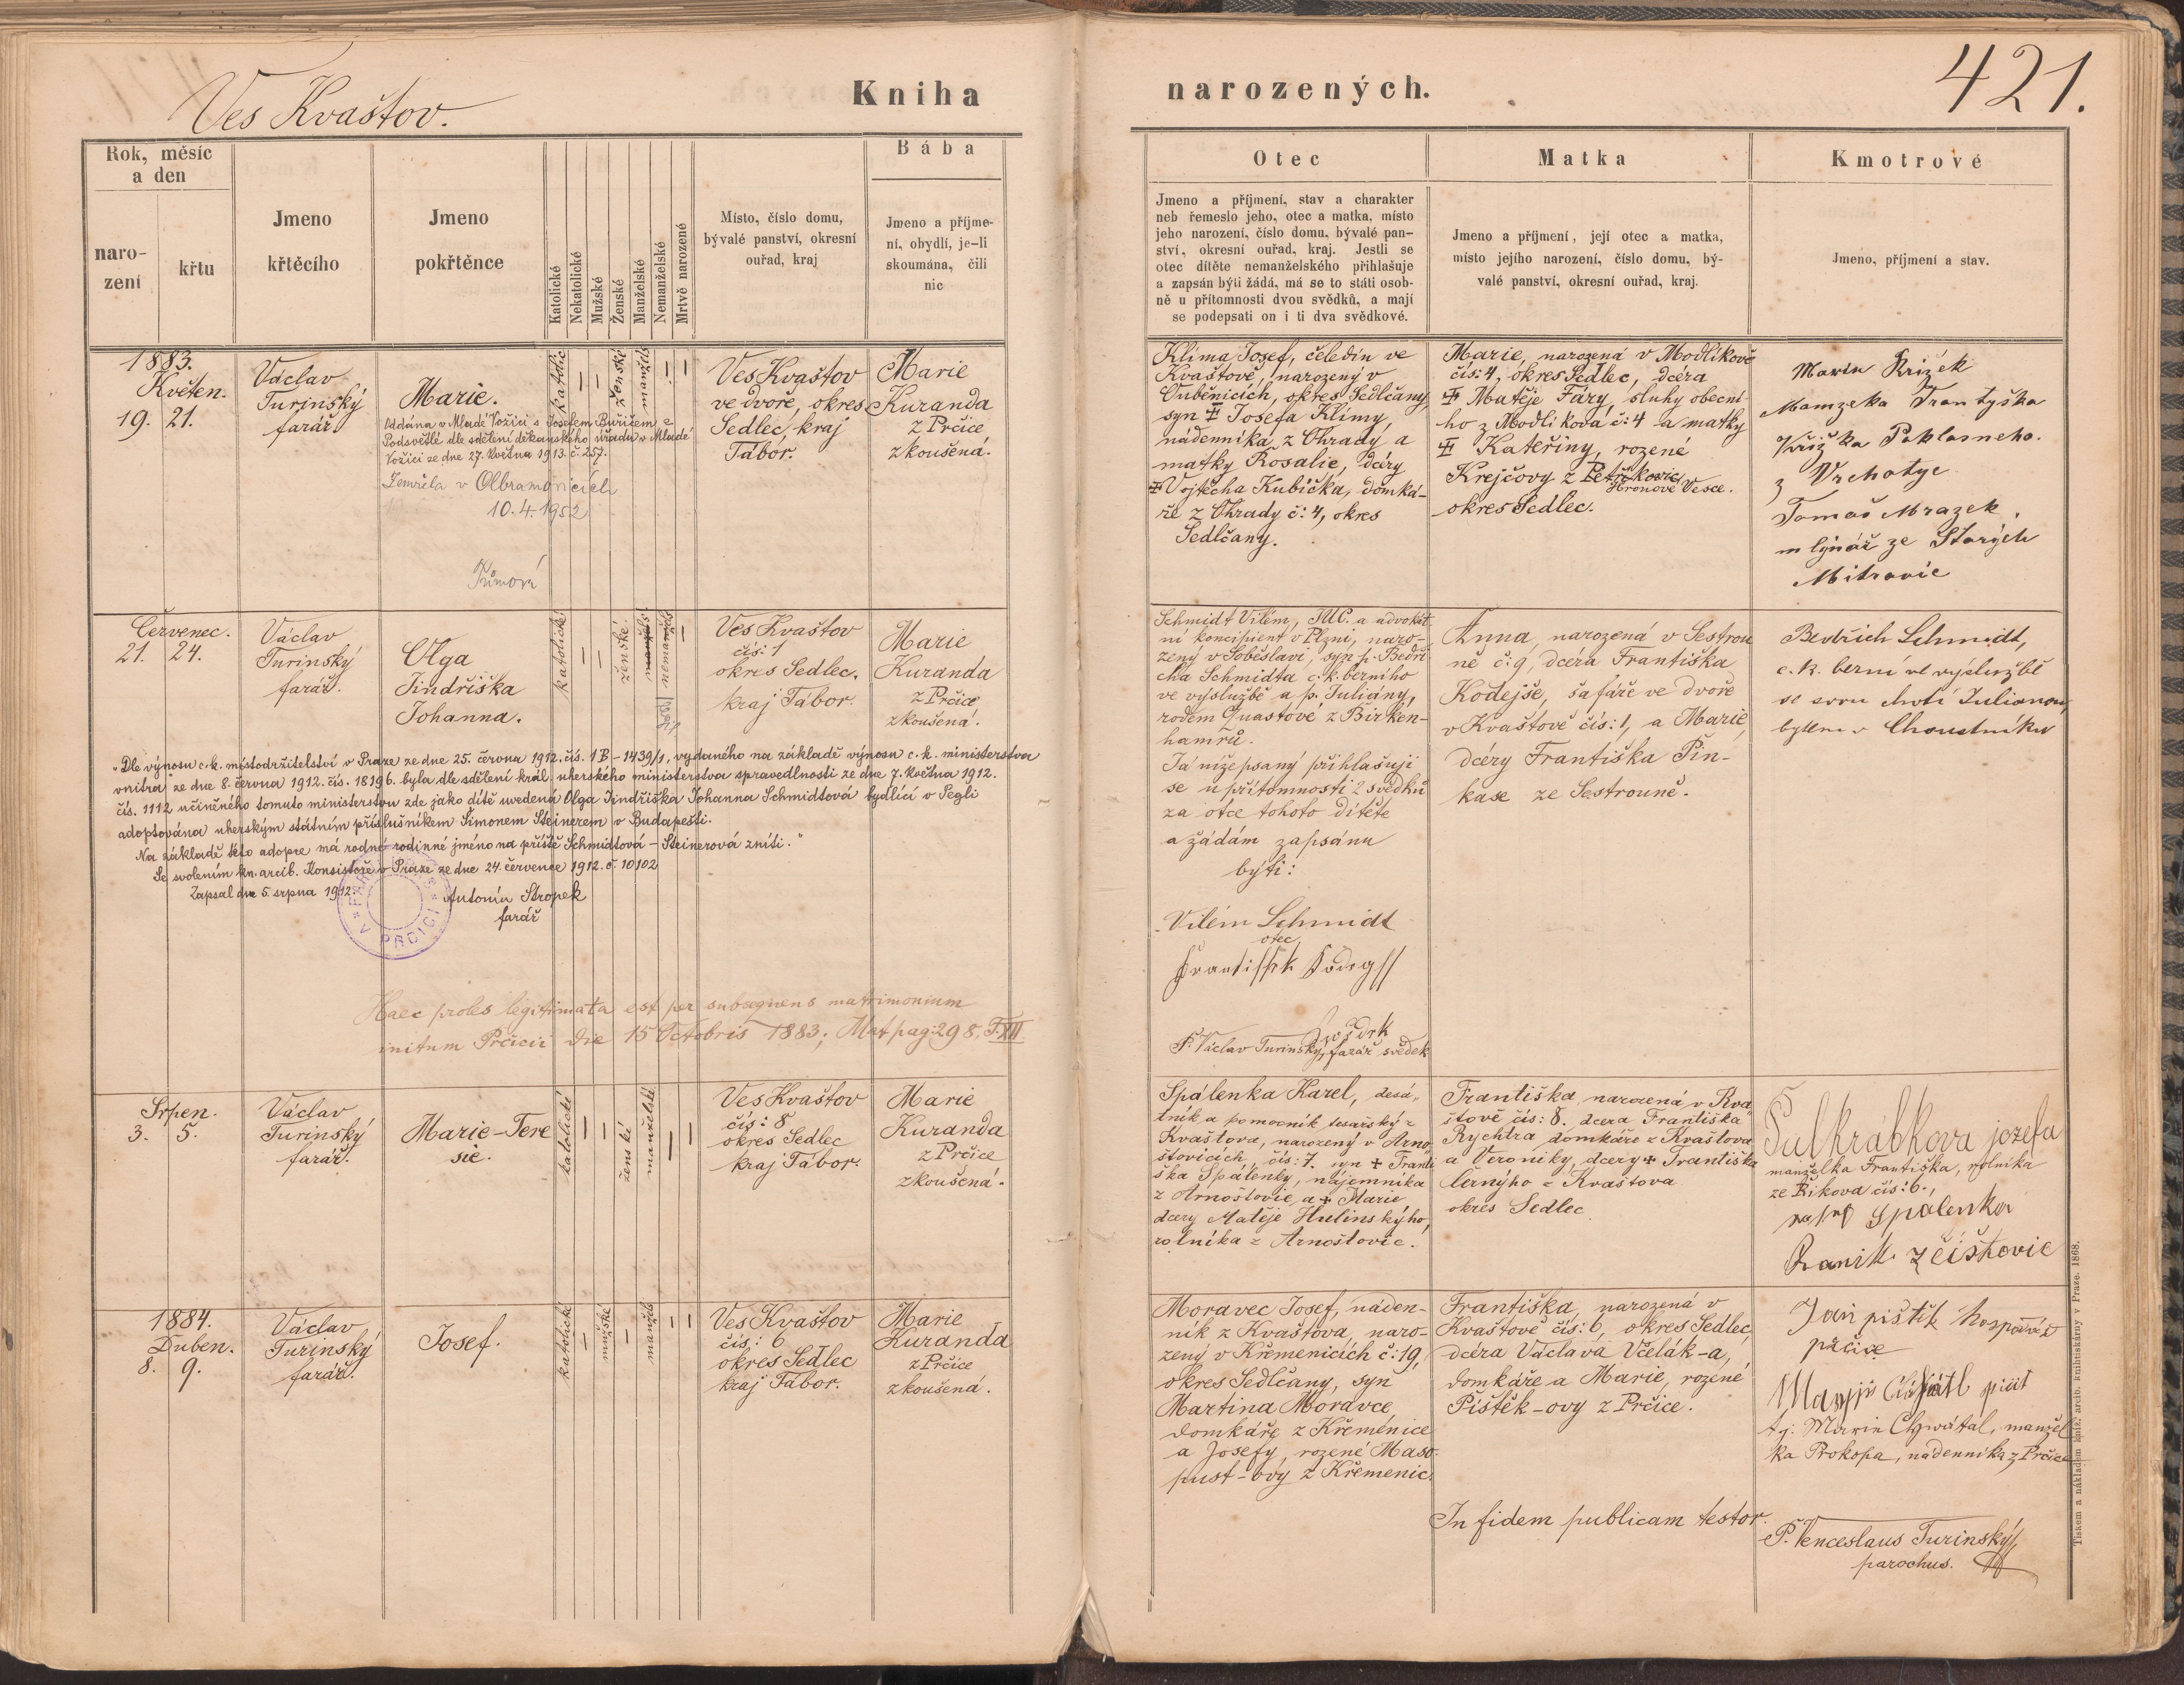 Ves Kvaštov.
Kniha
narozených.
421.
Rok, měsíc
a den
naro-
zení
křtu
Jmeno
křtěcího
Jmeno
pokřtěnce
Katolické
Nekatolické
Mužské
Ženské
Manželské
Nemanželské
Mrtvě narozené
Místo, číslo domu,
bývalé panství, okresní
ouřad, kraj
Bába
Jmeno a příjme-
ní, obydlí, je-li
skoumána, čili
nic
Otec
Jmeno a příjmení, stav a charakter
neb řemeslo jeho, otec a matka, místo
jeho narození, číslo domu, bývalé pan-
ství, okresní ouřad, kraj. Jestli se
otec dítěte nemanželského přihlašuje
a zapsán býti žádá, má se to státi osob-
ně u přítomnosti dvou svědků, a mají
se podepsati on i ti dva svědkové.
Matka
Jmeno a příjmení, její otec a matka,
místo jejího narození, číslo domu, bý-
valé panství, okresní ouřad, kraj.
Kmotrové
Jmeno, příjmení a stav.
1883.
Květen.
19. 21.
Václav
Turinský
farář.
Marie.
Oddána v Mladé Vožici s Josefem Buřičem z
Podsvětlé dle sdělení děkanského úřadu v Mladé
Vožici ze dne 27. Května 1913. č. 257.
Zemřela v Olbramovicích
10.4.1952
Tůmová
katolic
—
—
ženské
manžels
—
—
Ves Kvaštov
ve dvoře, okres
Sedlec, kraj
Tábor.
Marie
Kuranda
z Prčice
zkoušená.
Klíma Josef, čeledín ve
Kvaštově, narozený v
Oubenicích, okres Sedlčany,
syn ‡ Josefa Klímy,
nádenníka z Ohrady a
matky Rosalie, dcéry
‡ Vojtěcha Kubíčka, domká-
ře z Ohrady č: 4, okres
Sedlčany.
Marie, narozená v Modlíkově
čís: 4, okres Sedlec, dcéra
‡ Matěje Fáry, sluhy obecní-
ho z Modlíkova č: 4 a matky
‡ Kateřiny, rozené
Krejčovy z Petříkovic
Hronové Vesce.
okres Sedlec.
Marie Křížek
Mamzelka Františka
Křížka
z Vrchotye
Tomáš Mrazek,
mlýnář ze Starých
Mitrovic
Červenec.
21. 24.
Václav
Turinský
farář.
Olga
Jindřiška
Johanna.
katolické
—
—
ženské.
manžels
nemanžels
—
Ves Kvaštov
čís: 1
okres Sedlec.
kraj Tábor.
Marie
Kuranda
z Prčice
zkoušená.
Schmidt Vilém, JUC. a advokát-
ní koncipient v Plzni, naro-
zený v Soběslavi, syn p. Bedři-
cha Schmidta c. k. berního
ve výslužbě a p. Juliány,
rodem Quastové z Birken-
hamrů.
Já nížepsaný přihlašuji
se u přítomnosti 2 svědků
za otce tohoto dítěte
a žádám zapsánu
býti:
Vilém Schmidt
otec
František
P. Václav Turinský, farář svědek
Anna, narozená v Sestrou-
ně č. 9, dcéra Františka
Kodejše, šafáře ve dvoře
v Kvaštově čís: 1, a Marie,
dcéry Františka Pin-
kase ze Sestrouně.
Bedřich Schmidt,
c. k. berní ve výslužbě
se svou chotí Julianou,
bytem v Choustníku
„Dle výnosu c. k. místodržitelství v Praze ze dne 25. června 1912. čís. 1 B – 1439/1, vydaného na základě výnosu c. k. ministerstva
vnitra ze dne 8. června 1912. čís. 18196. byla dle sdělení král. uherského ministerstva spravedlnosti ze dne 7. května 1912.
čís. 1112 učiněného tomuto ministerstvu zde jako dítě uvedená Olga Jindřiška Johanna Schmidtová bydlící v Pegli
adoptována uherským státním příslušníkem Šimonem Steinerem v Budapešti.
Na základě této adopce má rodné rodinné jméno na příště Schmidtová – Steinerová zníti.“
Se svolením kn. arcib. Konsistoře v Praze ze dne 24. července 1912. č. 10102
Zapsal dne 5. srpna 1912.
Antonín Stropek
farář
V PRČICI
Haec proles legitimata est per subsequens matrimonium
initum Prčicii die 15 Octobris 1883; Mat pag: 298, T. XII.
Srpen.
3. 5.
Václav
Turinský
farář.
Marie-Tere
sie.
katolické
—
—
ženské
manželské
—
—
Ves Kvaštov
čís: 8
okres Sedlec
kraj Tábor.
Marie
Kuranda
z Prčice
zkoušená.
Spálenka Karel, desá-
tník a pomocník tesařský z
Kvaštova, narozený v Arno-
štovicích, čís: 7. syn + Franti-
ška Spálenky, nájemníka
z Arnoštovic, a + Marie
dcery Matěje Hulínského,
rolníka z Arnoštovic.
Františka, narozená v Kva-
štově čís: 8. dcera Františka
Rychtra domkáře z Kvaštova
a Veroniky, dcery + Františka
Černýho z Kvaštova
okres Sedlec
Šulkrabkova jozefa
manželka Františka, rolníka
ze Řikova čís: 6.,
Spalenka
z čištovic
1884.
Duben.
8. 9.
Václav
Turinský
farář.
Josef.
katolické
—
mužské
—
manžels
—
—
Ves Kvaštov
čís: 6
okres Sedlec
kraj Tábor.
Marie
Kuranda
z Prčice
zkoušená.
Moravec Josef, náden-
ník z Kvaštova, naro-
zený v Křemenicích č: 19,
okres Sedlčany, syn
Martina Moravce
domkáře z Křemenice
a Josefy, rozené Maso-
pust-ovy z Křemenic.
Františka, narozená v
Kvaštově čís: 6, okres Sedlec,
dcéra Václava Včelák-a,
domkáře a Marie, rozené
Píštěk-ovy z Prčice.
Jan pištik hospodář
pržice
t. j. Marie Chwátal, manžel-
ka Prokopa, nádenníka z Prčice
In fidem publicam testor.
P. Venceslaus Turinský,
parochus.
Tiskem a nákladem kníž. arcib. knihtiskárny v Praze. 1868.